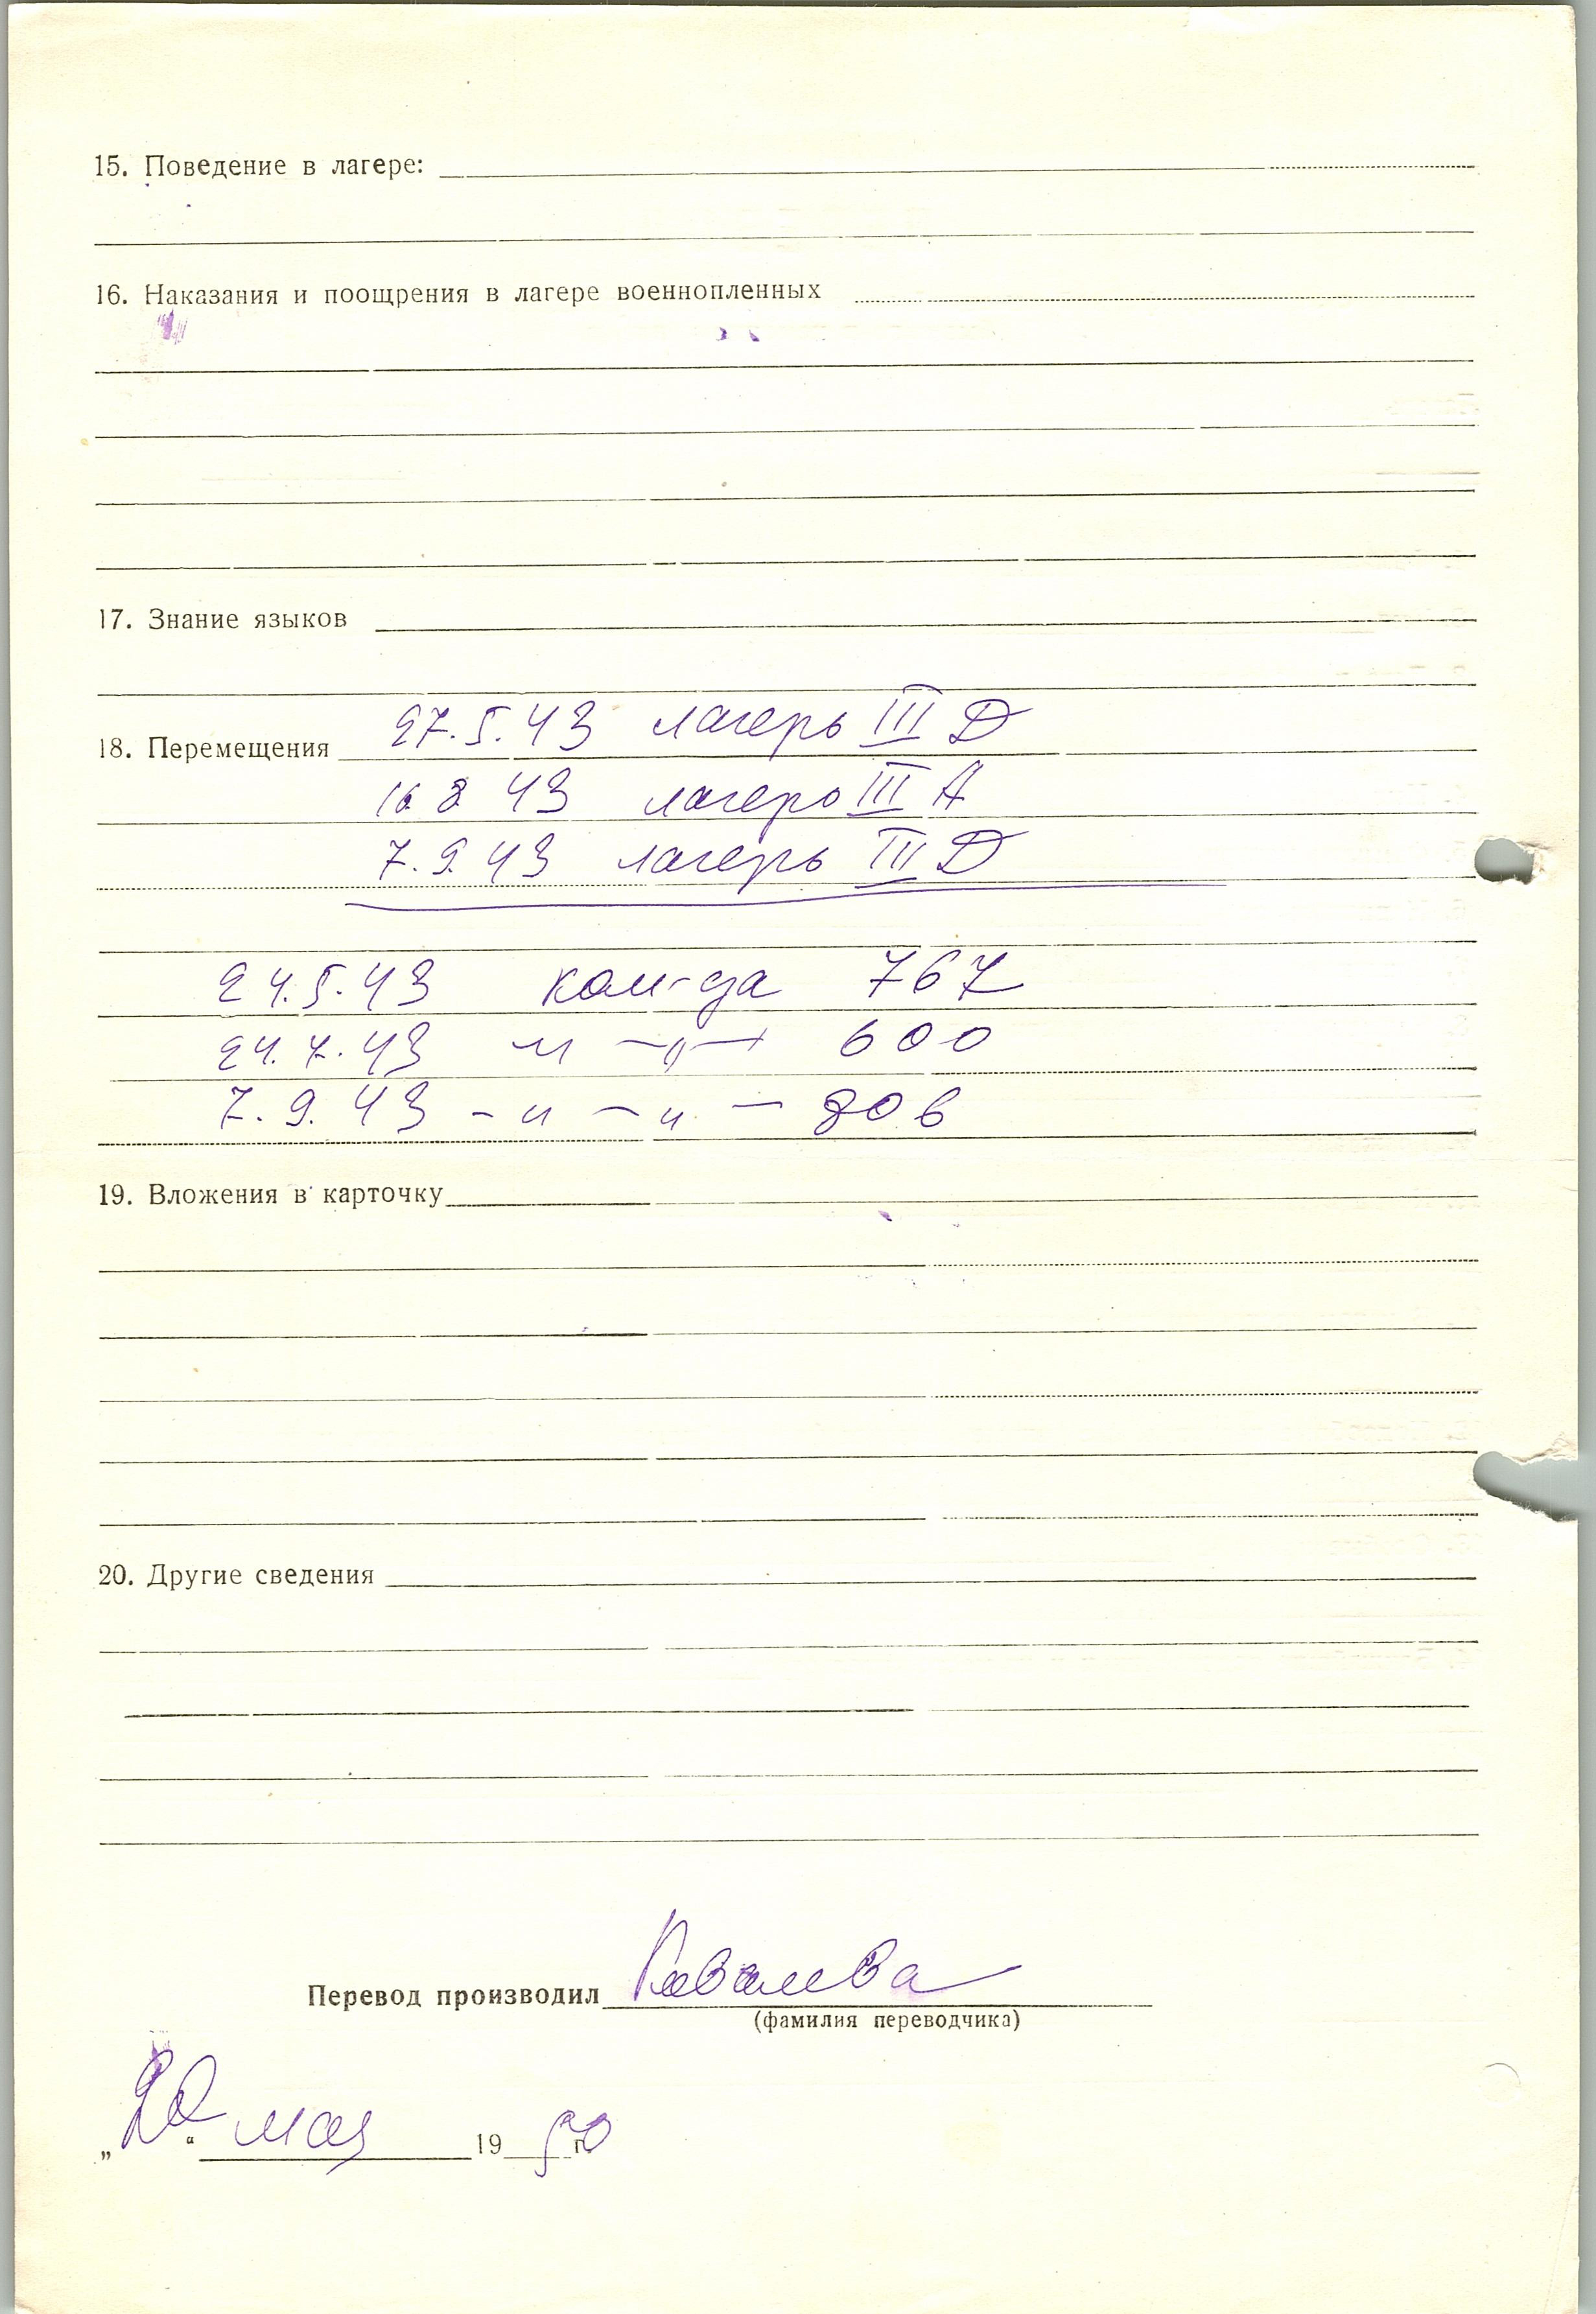 15. Поведение в лагере:
16. Наказания и поощрения в лагере военнопленных
17. Знание языков
27.5.43 лагерь III Д
18. Перемещения
16.8 43 лагерь III А
7.9.43 лагерь III Д
24.5.43 ком-да 767
24.7.43 -"- 600
7.9.43 - " - " - 806
19. Вложения в карточку
20. Другие сведения
Перевод производил Ковалева
(фамилия переводчика)
„20“ мая 1950 г.